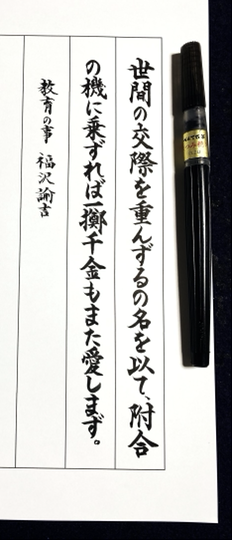 世間の交際を重んずるの名を以て、附合
の機に乗ずれば一擲千金もまた愛しまず。
教育の事 福沢諭吉